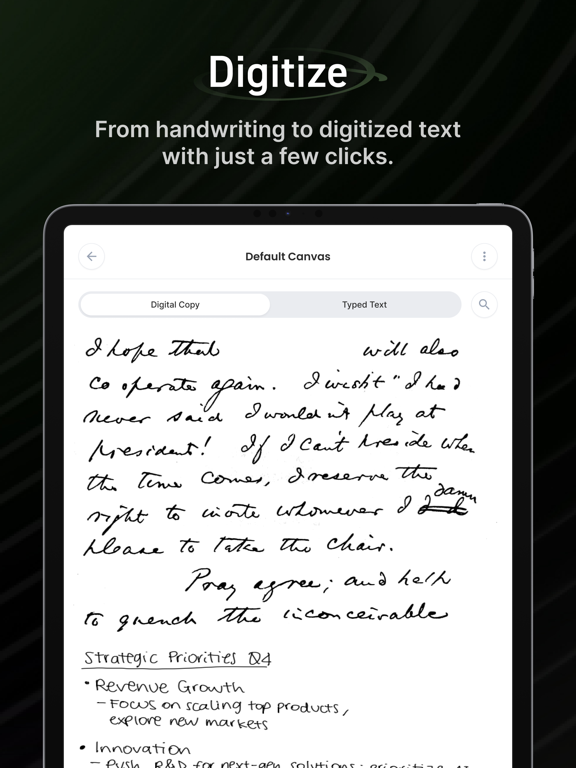 Digitize
From handwriting to digitized text
with just a few clicks.
Default Canvas
Digital Copy
Typed Text
I hope that will also
cooperate again. I wish't "I had
never said I wouldn't play at
president! If I can't preside when
the time comes, I reserve the
right to invite whomever I damn
please to take the chair.
Pray agree; and help
to quench the inconceivable
Strategic Priorities Q4
• Revenue Growth
- Focus on scaling top products,
explore new markets
• Innovation
- Push R&D for next-gen solutions; prioritize